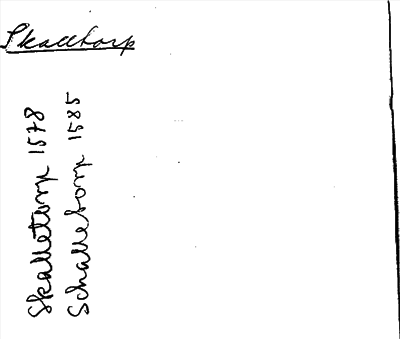 Skalltorp
Skalletorp 1578
Schalletorp 1585